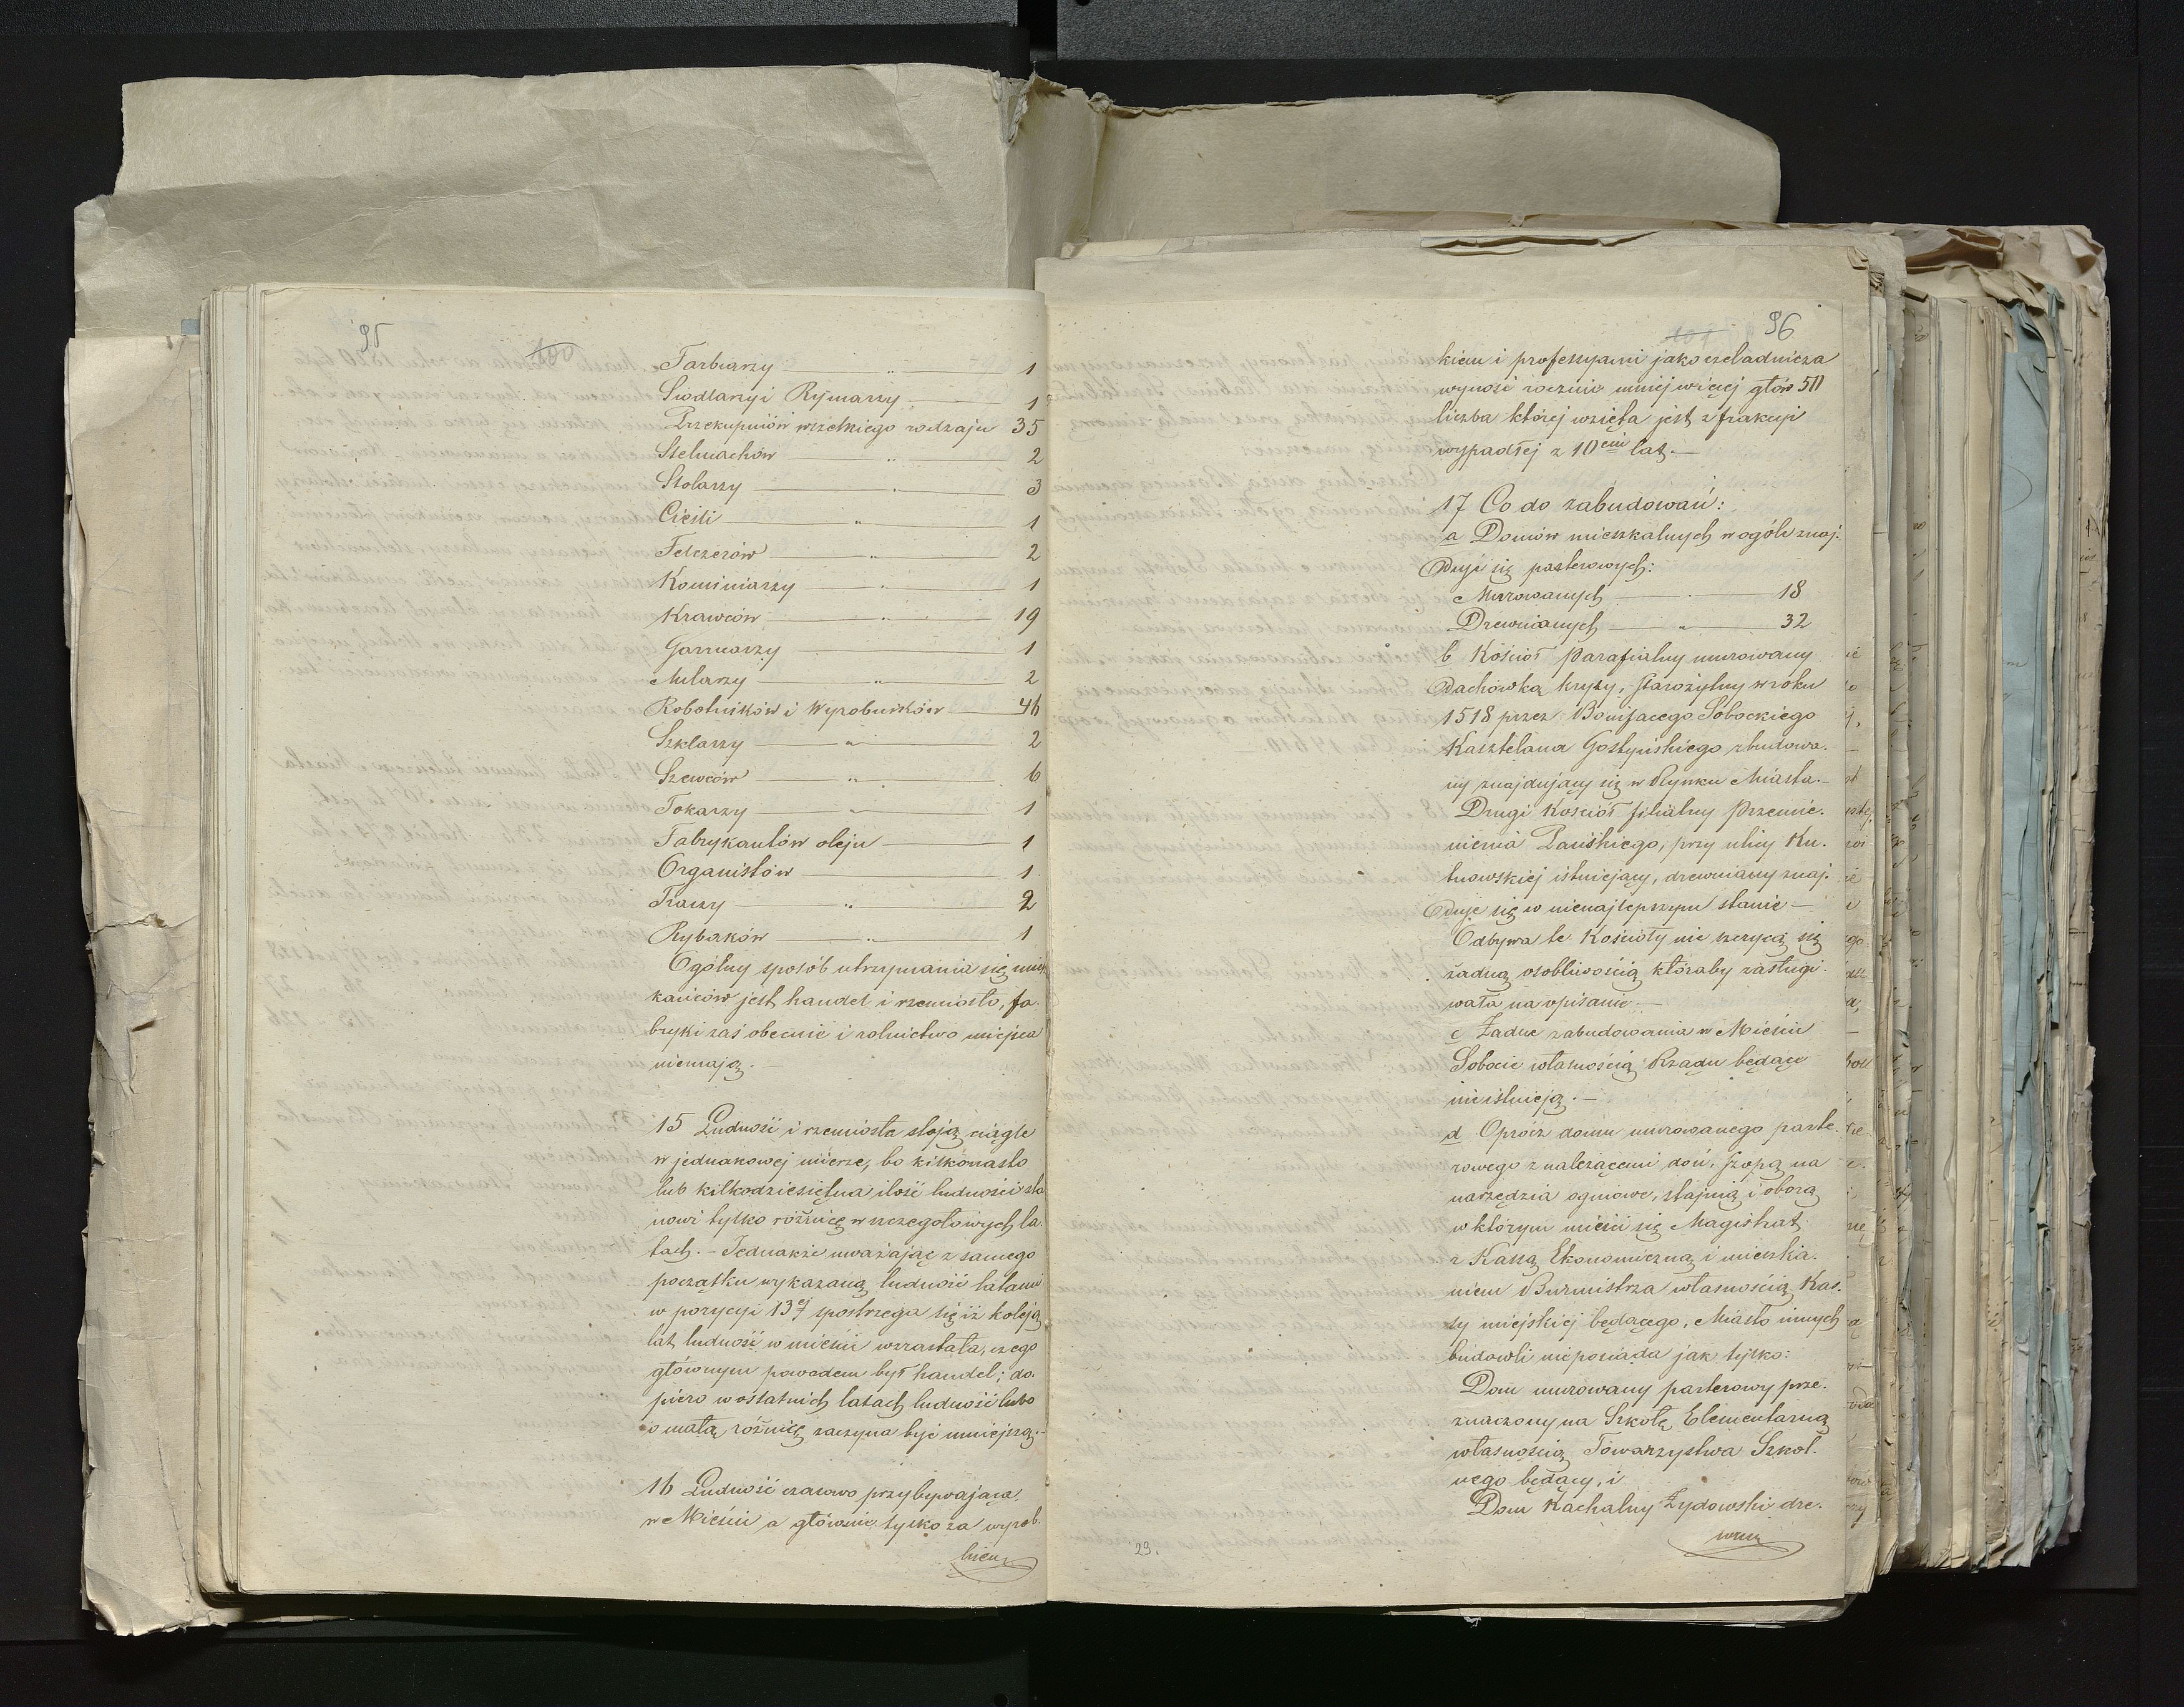 95
100
Farbiarzy — „ — 1
Siodlarzy i Rymarzy — 1
Przekupniów wszelkiego rodzaju 35
Stelmachów — „ — 2
Stolarzy — „ — 3
Cieśli — „ — 1
Felczerów — „ — 2
Kominiarzy — „ — 1
Krawców — „ — 19
Garncarzy — 1
Mularzy — „ — 2
Robotników i Wyrobników — 46
Szklarzy — „ — 2
Szewców — „ — 6
Tokarzy — „ — 1
Fabrykantów oleju — 1
Organistów — 1
Traczy — „ — 2
Rybaków — „ — 1
Ogólny sposób utrzymania się miesz
kańców jest handel i rzemiosło, fa-
bryki zaś obecnie i rolnictwo miejsca
niemają. —
15 Ludność i rzemiosła stoją ciągle
w jednakowej mierze, bo kilkonasto
lub kilkodziesiętna ilość ludności sta
nowi tylko różnicę w szczegółowych la-
tach. – Jednakże uważając z samego
początku wykazaną ludność latami
w pozycyi 13ej spostrzega się iż koleją
lat ludność w mieście wzrastała, czego
głównym powodem był handel; do-
piero w ostatnich latach ludność lubo
o małą różnicę zaczyna być mniejszą. –
16 Ludność czasowo przybywająca
w Mieście a głównie tylko za wyrob-
kiem
96
101
kiem i professyami jako czeladnicza
wynosi rocznie mniej więcej głów 50
liczba której wzięta jest z frakcyi
wypadłej z 10ciu lat. —
17 Co do zabudowań:
a Domów mieszkalnych w ogóle znaj-
duje się parterowych:
Murowanych — „ — 18
Drewnianych — „ — 32
b Kościół parafialny murowany
dachówką kryty, starożytny w roku
1518 przez Bonifacego Sobockiego
Kasztelana Gostyńskiego zbudowa-
ny znajdujący się w Rynku Miasta. –
Drugi Kościół filialny Przemie-
nienia Pańskiego, przy ulicy Ku-
tnowskiej istniejący, drewniany znaj-
duje się w nienajlepszym stanie —
Odbywa te Kościoły nie szczycą się
żadną osobliwością któraby zasługi-
wała na opisanie —
c Żadne zabudowania w Mieście
Sobocie własnością Rządu będące
nieistnieją. —
d Oprócz domu murowanego parte-
rowego z należącemi doń, szopą na
narzędzia ogniowe, stajnią i oborą
w którym mieści się Magistrat
z Kassą Ekonomiczną i mieszka-
niem Burmistrza własnością Kas-
sy miejskiej będącego, Miasto innych
budowli nieposiada jak tylko:
Dom murowany parterowy prze-
znaczony na Szkołę Elementarną
własnością Towarzystwa Szkol-
nego będący, i
Dom Kachalny Żydowski dre-
wnia
23.